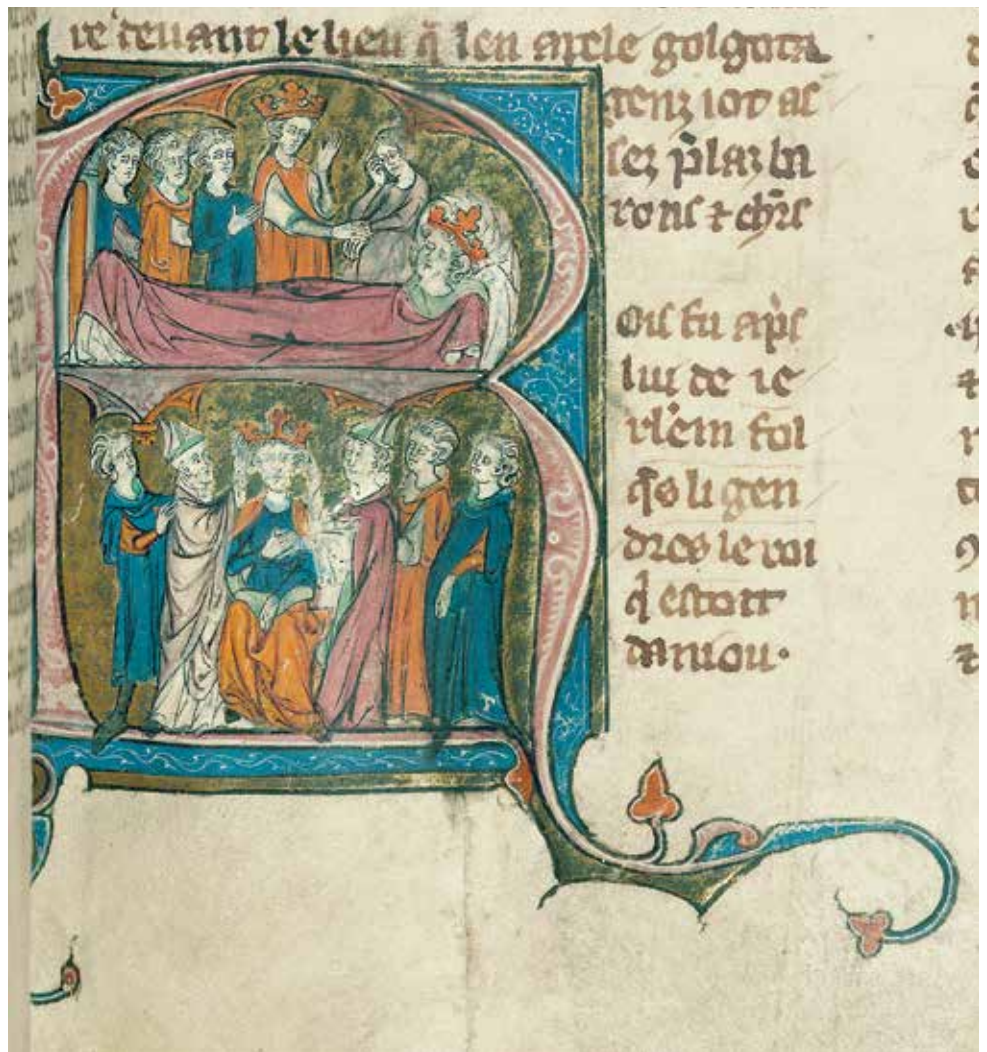 re deuant le lieu q̃ len apele golgota
genz iot as
sez p̃laz ba
rons ⁊ ch̃rs
Ois fu ap̃s
lui de ie
rl̃em fol
q̃s li gen
dres le roi
q̃ estoit
daniou·